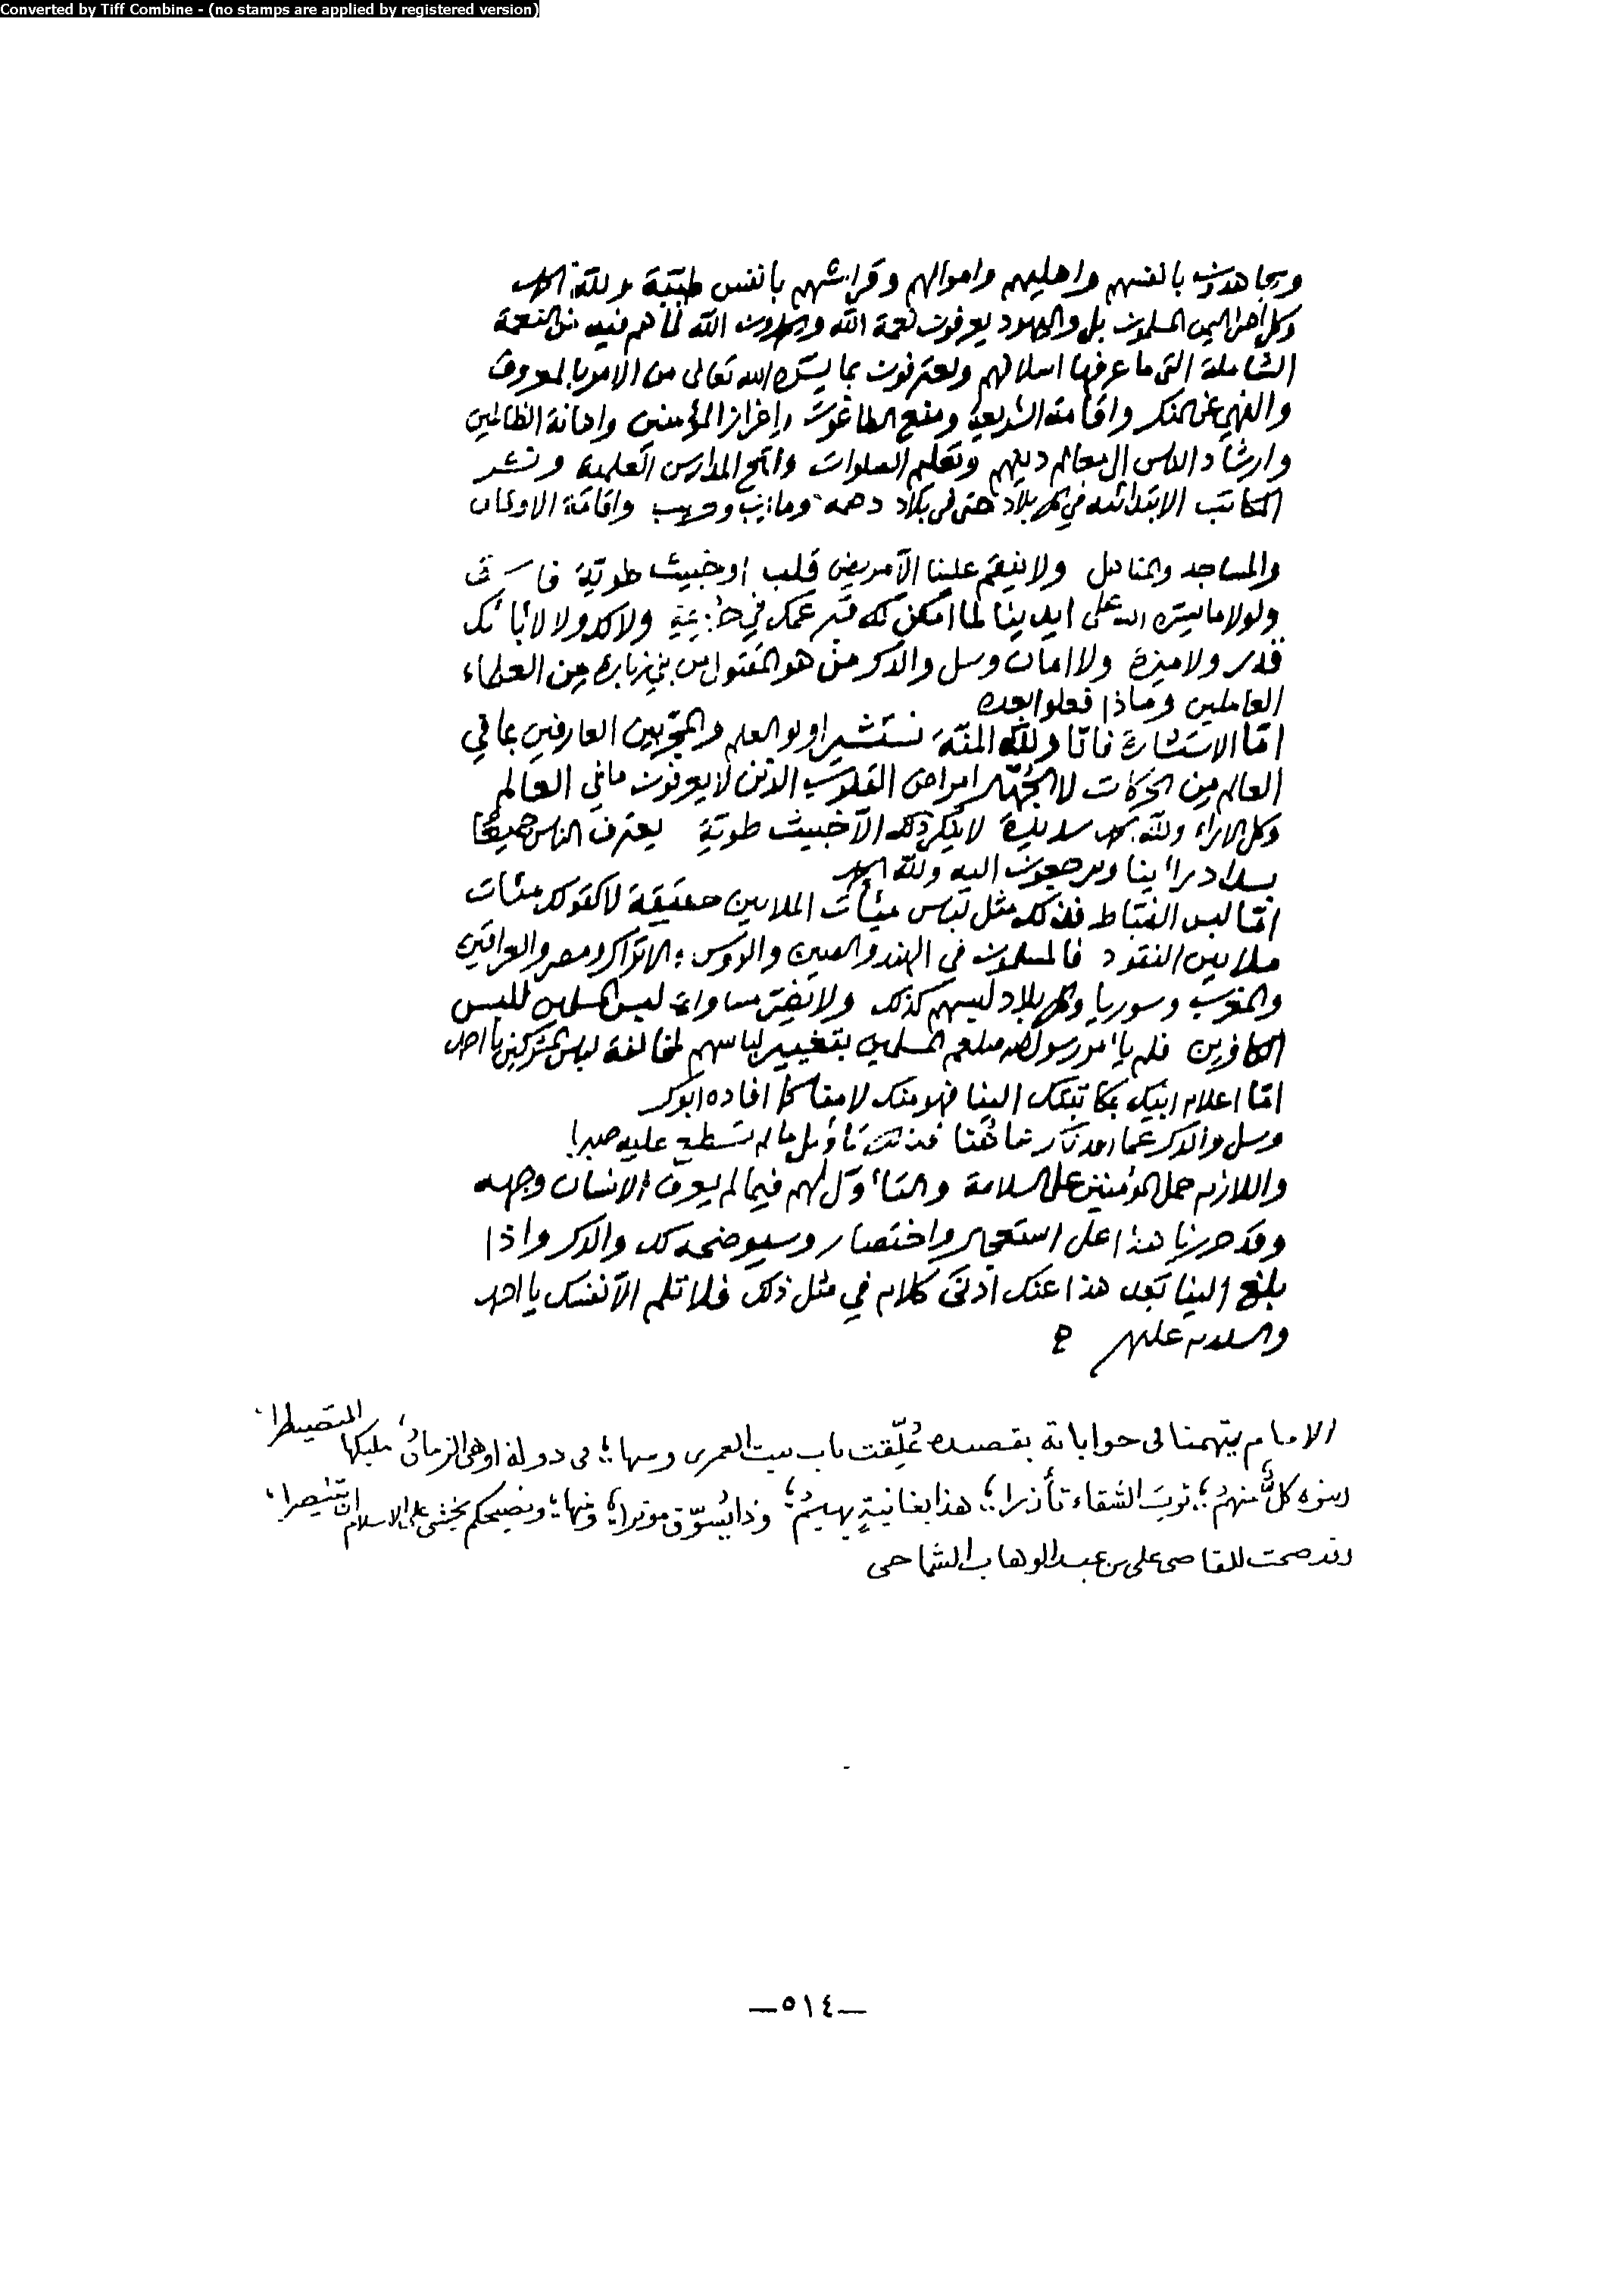 Converted by Tiff Combine - (no stamps are applied by registered version)
ويجاهدون بانفسهم واهليهم واموالهم وقرائشهم بانفس طيّبة وللّه الحمد
وكل اهل اليمن المسلمون بل واليهود يعرفون نعمة اللّه ويحمدون اللّه لما هم فيه من النعمة
الشاملة التي ما عرفها اسلافهم ويعترفون بما يسّره الله تعالى من الامر بالمعروف
والنهي عن المنكر واقامة الشريعة ومنع الطاغوت واعزاز المؤمنين واهانة الظالمين
وارشاد الناس الى معالم دينهم وتعليم الصلوات وفتح المدارس العلمية ونشر
المكاتب الابتدائيه في كل بلاد حتى في بلاد دهمه ومأرب وحريب واقامة الاوقاف
والمساجد والمناهل ولا ينقم علينا الّا مريض قلب او خبيث طويّة فاسق
ولولا ما يسّره الله على ايدينا لما امكن لك قبر عمك في خزيمة ولا لك ولا لابائك
قدر ولا ميزة ولا امان وسل والدكم من هو المقتول من بني زباره من العلماء
العاملين وماذا فعلوا بعده
امّا الاستشارة فانّا وللّه المنّة نستشير اولو العلم والمجرّبين العارفين بما في
العالم من الحركات لا الجُهّال امراض القلوب الذين لا يعرفون ما في العالم
وكل الاراء وللّه الحمد سديدة لا ينكر ذلك الّا خبيث طويّة يعترف الناس جميعًا
بسداد رأينا ويرجعون اليه وللّه الحمد
امّا لبس الضبّاط فذلك مثل لباس مئآت الملايين حقيقة لا كقولك مئات
ملايين النقود فالمسلمون في الهند والصين والروس والاتراك ومصر والعراقين
والمغرب وسوريا وكل بلاد لبسهم كذلك ولا يضرّ مساواة لبس المسلمين للبس
الكافرين فلم يأمر رسول الله صلعم المسلمين بتغيير لباسهم لمخالفة لباس المشركين يا احمد
امّا اعلام ابنيك بمكاتبتك الينا فهو منك لا منا كما افاده ابوكم
وسل والدكم عما
واللازم حمل المؤمنين على السلامة والتأوّل لهم فيما لم يعرف الانسان وجهه
وقد حررنا هذا على استعجال واختصار وسيوضحه لك والدكم واذا
بلغ الينا بعد هذا عنك ادنى كلام في مثل ذلك فلا تلم الّا نفسك يا احمد
والسلام عليكم
الامام يتهمنا في جواباته بقصيده عُلّقت بباب بيت العمري ومنها؛ في دولة اوهى الزمانُ مليكها المتصيطرا،
وبنوه كلٌّ منهمُ؛ ثوبَ الشقاء تأزرا؛ هذا بغانيةٍ يهيمُ؛ وذا يُسوّق موترا؛ ومنها؛ ونصيحكم يخشى على الاسلام ان يتنصرا،
وقد صحت للقاضي علي بن عبد الوهاب الشماحي
—٥١٤—